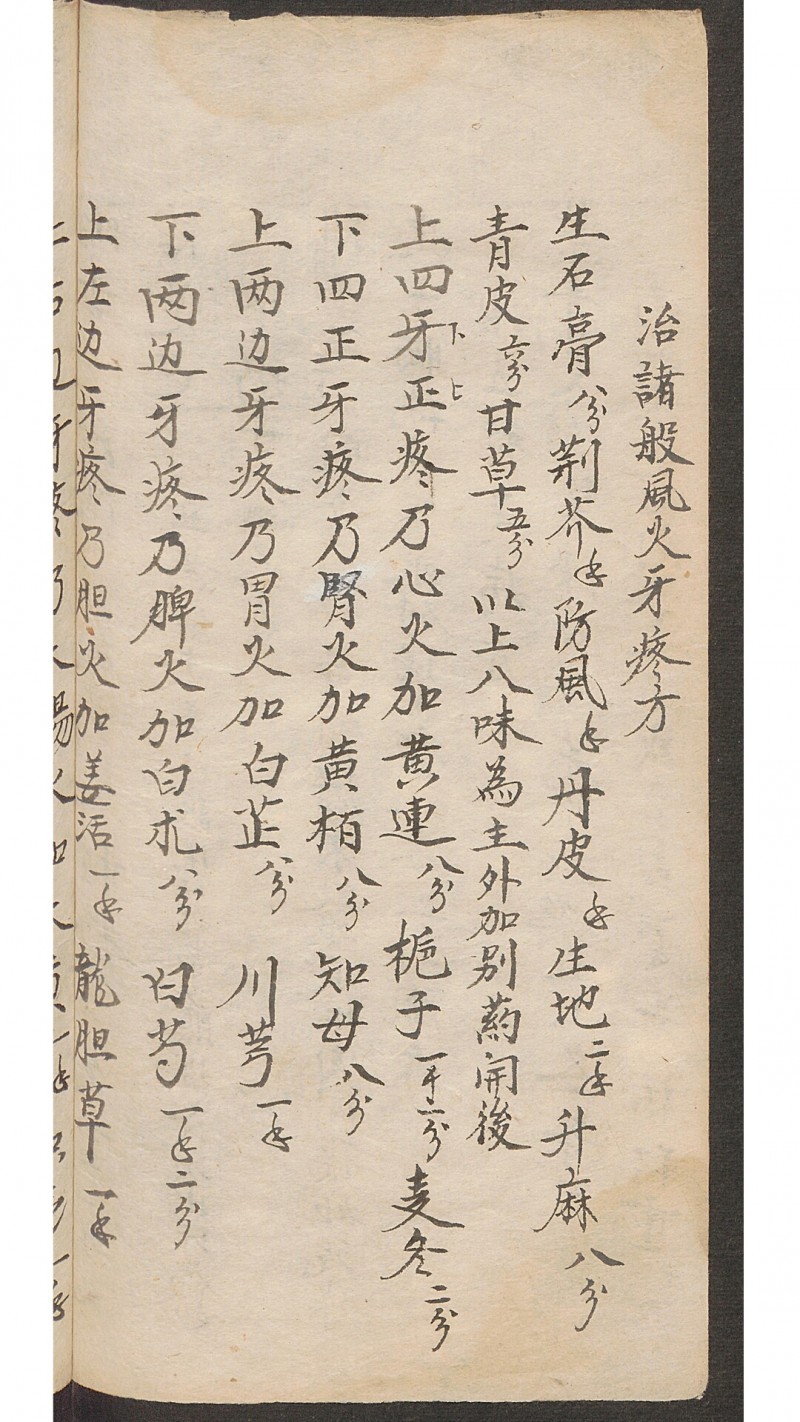 治諸般風火牙疼方
生石膏八分荆芥钱防風钱丹皮钱生地二钱升麻八分
青皮六分甘草五分以上八味為主外加别薬開後
上四牙正疼乃心火加黄連八分梔子一钱二分麦冬二分
下上
下四正牙疼乃腎火加黄栢八分知母八分
上两边牙疼乃胃火加白芷八分川芎一钱
下两边牙疼乃脾火加白朮八分白芍一钱二分
上左边牙疼乃胆火加姜活一钱龍胆草一钱